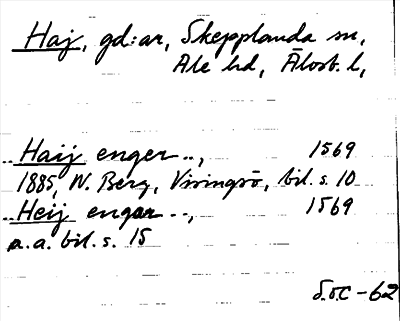 Haj, gd:ar, Skepplanda sn,
Ale hd, Älvsb. l,
.. Haij enger ..., 1569
1885, W. Berg, Visingsö, bil. s. 10
.. Heij engar ..., 1569
a. a. bil. s. 15